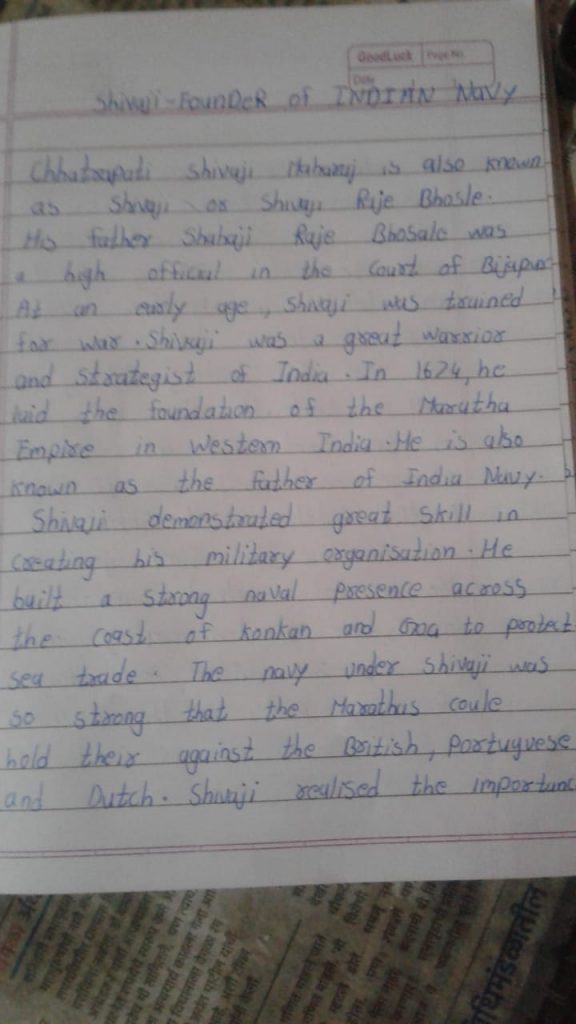 GoodLuck Page No.
Date
Shivaji-FounDeR of INDIAN Navy
Chhatrapati Shivaji Maharaj is also known
as Shivaji or Shivaji Raje Bhosle.
His father Shahaji Raje Bhosale was
a high official in the court of Bijapur
At an early age, Shivaji was trained
for war. Shivaji was a great warrior
and strategist of India. In 1674, he
laid the foundation of the Maratha
Empire in Western India. He is also
known as the father of India Navy.
Shivaji demonstrated great skill in
creating his military organisation. He
built a strong naval presence across
the coast of Konkan and Goa to protect
sea trade. The navy under Shivaji was
so strong that the Marathas coule
hold their against the British, Portuguese
and Dutch. Shivaji realised the importanc